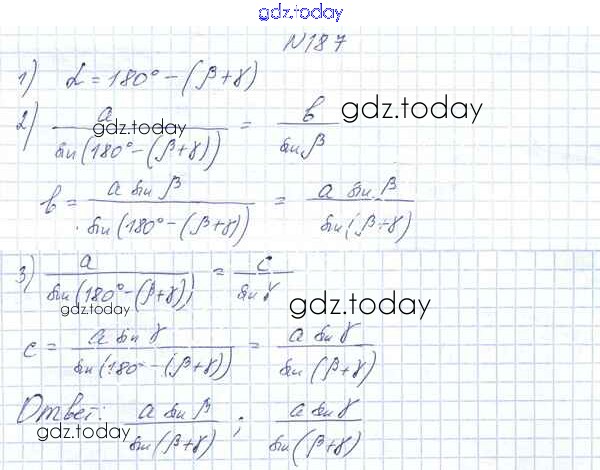 gdz.today
N187
1) α = 180° − (β + γ)
2) a / sin(180° − (β + γ)) = b / sin β
gdz.today gdz.today
b = a sin β / sin(180° − (β + γ)) = a sin β / sin(β + γ)
3) a / sin(180° − (β + γ)) = c / sin γ
gdz.today gdz.today
c = a sin γ / sin(180 − (β + γ)) = a sin γ / sin(β + γ)
Ответ: a sin β / sin(β + γ) ; a sin γ / sin(β + γ)
gdz.today